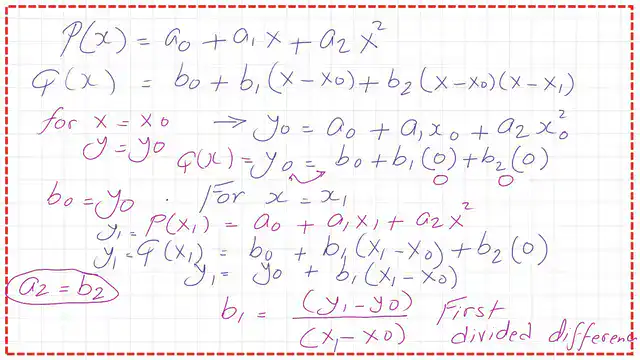 P(x) = a0 + a1x + a2x²
φ(x) = b0 + b1(x-x0) + b2(x-x0)(x-x1)
for x = x0 → y0 = a0 + a1x0 + a2x0²
y = y0
φ(x) = y0 = b0 + b1(0) + b2(0)
0 0
b0 = y0 . For x = x1
y1 = P(x1) = a0 + a1x1 + a2x²
y1 = φ(x1) = b0 + b1(x1-x0) + b2(0)
y1 = y0 + b1(x1-x0)
a2 = b2
b1 = (y1-y0) / (x1-x0) First
divided differenc